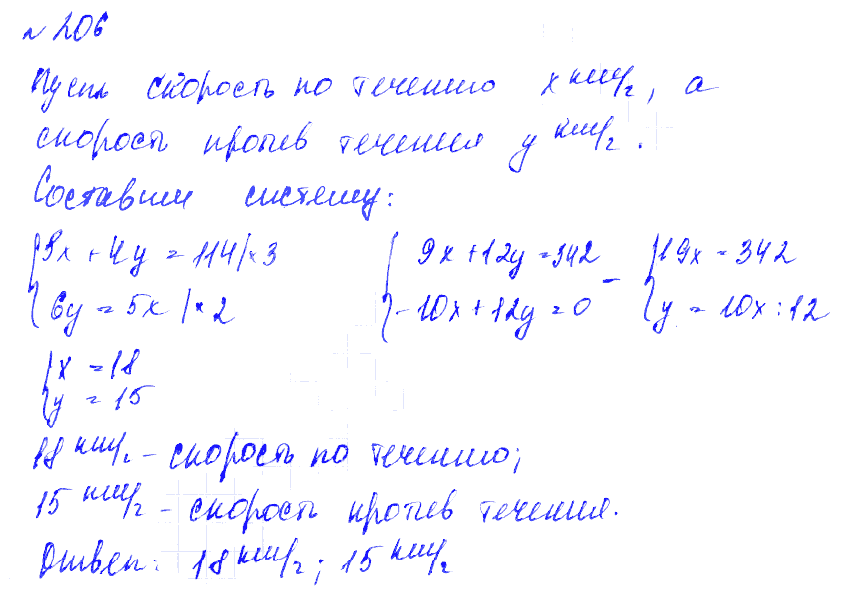 № 206
Пусть скорость по течению x км/г, а
скорость против течения y км/г.
Составим систему:
{3x + 4y = 114 | × 3 { 9x + 12y = 342 – {19x = 342
{6y = 5x | × 2 {-10x + 12y = 0 {y = 10x : 12
{x = 18
{y = 15
18 км/г – скорость по течению;
15 км/г – скорость против течения.
Ответ: 18 км/г; 15 км/г